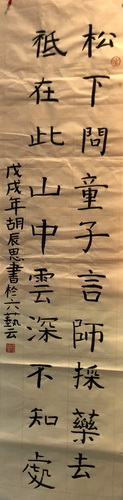 松下問童子言師採藥去
祗在此山中雲深不知處
戊戌年胡辰思書於六藝云